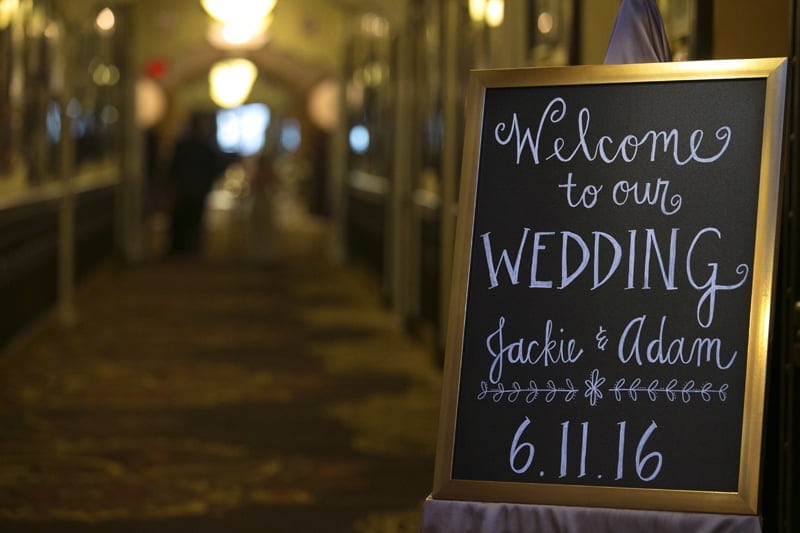 Welcome
to our
WEDDING
Jackie & Adam
6.11.16